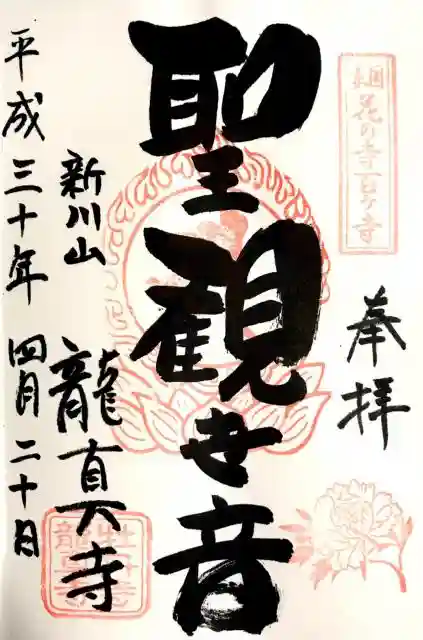 東国
花の寺百ヶ寺
奉拝
聖観世音
新川山
龍真寺
平成三十年 四月二十日